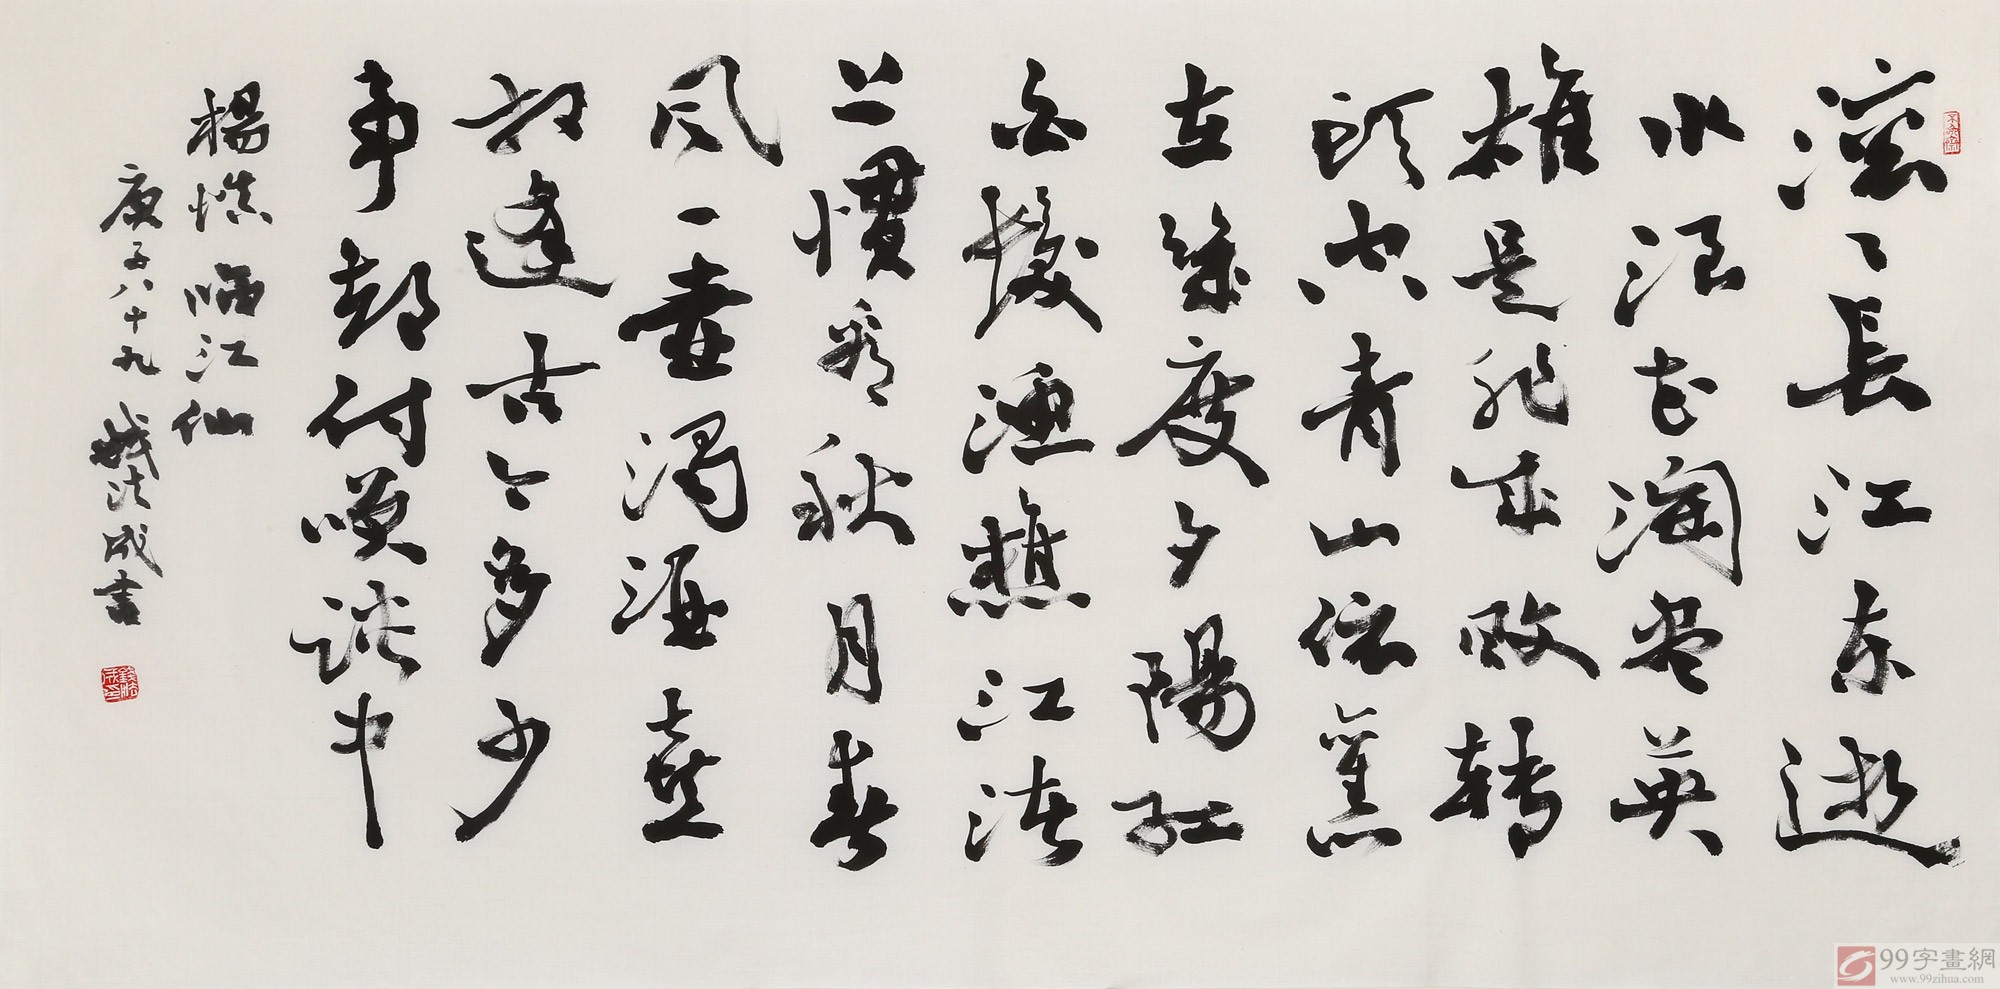 滚〻長江东逝
水浪花淘尽英
雄是非成败转
頭空青山依舊
在幾度夕陽紅
白髮漁樵江渚
上慣看秋月春
风一壺濁酒喜
相逢古今多少
事都付笑談中
楊慎临江仙
庚子八十九 钱法成書
錢法成印
99字畫網
www.99zihua.com